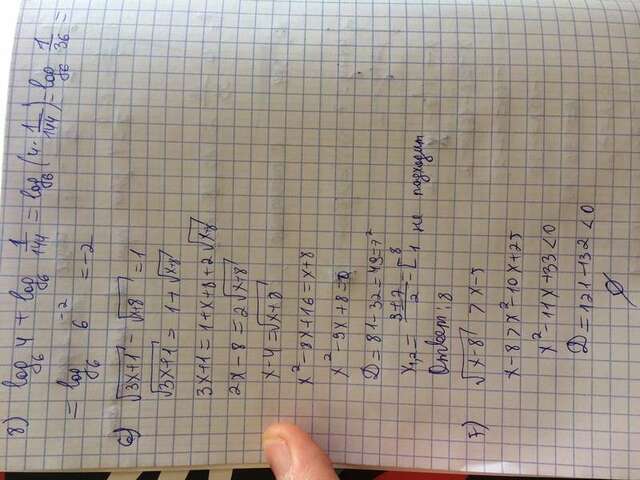 8) log₆ 4 + log₆ 1/144 = log₆ (4 · 1/144) = log₆ 1/36 =
= log₆ 6⁻² = -2
6) √(3x+1) - √(x+8) = 1
√(3x+1) = 1 + √(x+8)
3x+1 = 1+x+8+2√(x+8)
2x-8 = 2√(x+8)
x-4 = √(x+8)
x²-8x+16 = x+8
x²-9x+8=0
D = 81-32=49=7²
x₁,₂ = (9±7)/2 = [8 1 не подходит
Ответ: 8
7) √(x-8) > x-5
x-8 > x²-10x+25
x²-11x+33<0
D = 121-132<0
∅